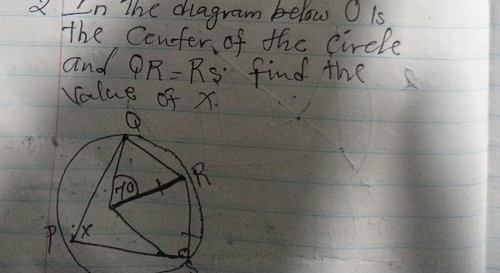 2 In the diagram below O Is
the Center of the Circle
and QR = RS. find the
value of x.
Q
70
R
P
x
S